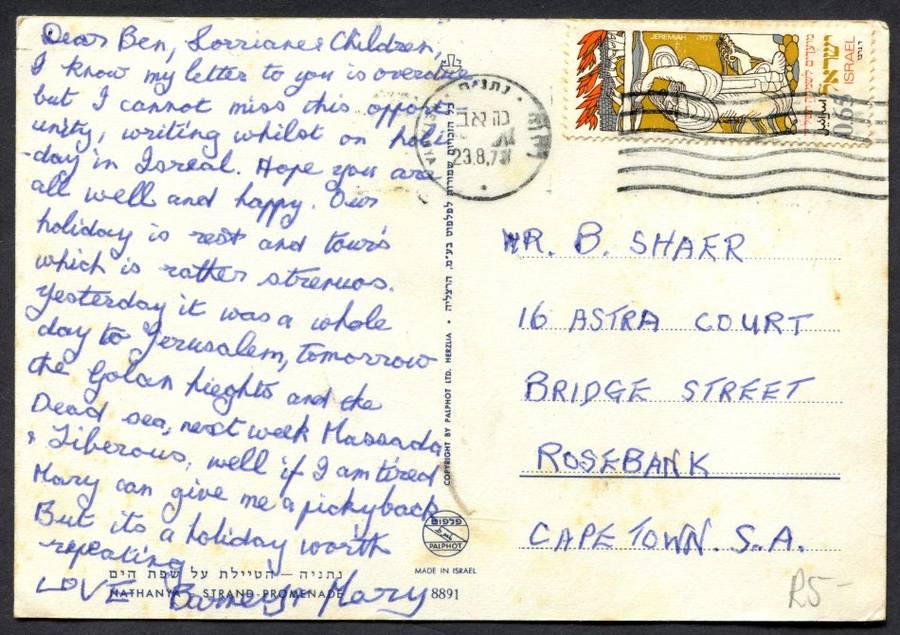 Dear Ben, Lorriane & Children,
I know my letter to you is overdue
but I cannot miss this opport
unity, writing whilst on holi
-day in Isreal. Hope you are
all well and happy. Our
holiday is rest and tours
which is rather strenuos.
Yesterday it was a whole
day to Jerusalem, tomorrow
the Golan hieghts and the
Dead sea, next week Massada
& Tiberous, well if I am tired
Mary can give me a pickyback
But its a holiday worth
repeating
LOVE & Mary
נתניה – הטיילת על שפת הים
NATHANYA STRAND-PROMENADE
8891
COPYRIGHT BY PALPHOT LTD. HERZLIA • כל הזכויות שמורות לפלפוט בע"מ. הרצליה
פלפוט
PALPHOT
MADE IN ISRAEL
נתניה
23.8.7
JEREMIAH ירמיה
מועדים לשמחה
ישראל
ISRAEL
0.65
MR. B. SHAER
16 ASTRA COURT
BRIDGE STREET
ROSEBANK
CAPE TOWN. S.A.
R5-